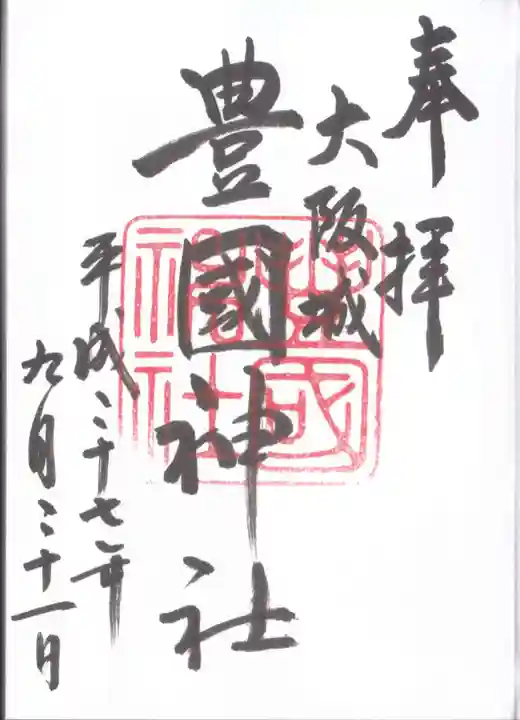 奉拝
大阪城
豊國神社
豊國神社
平成二十七年
九月二十一日